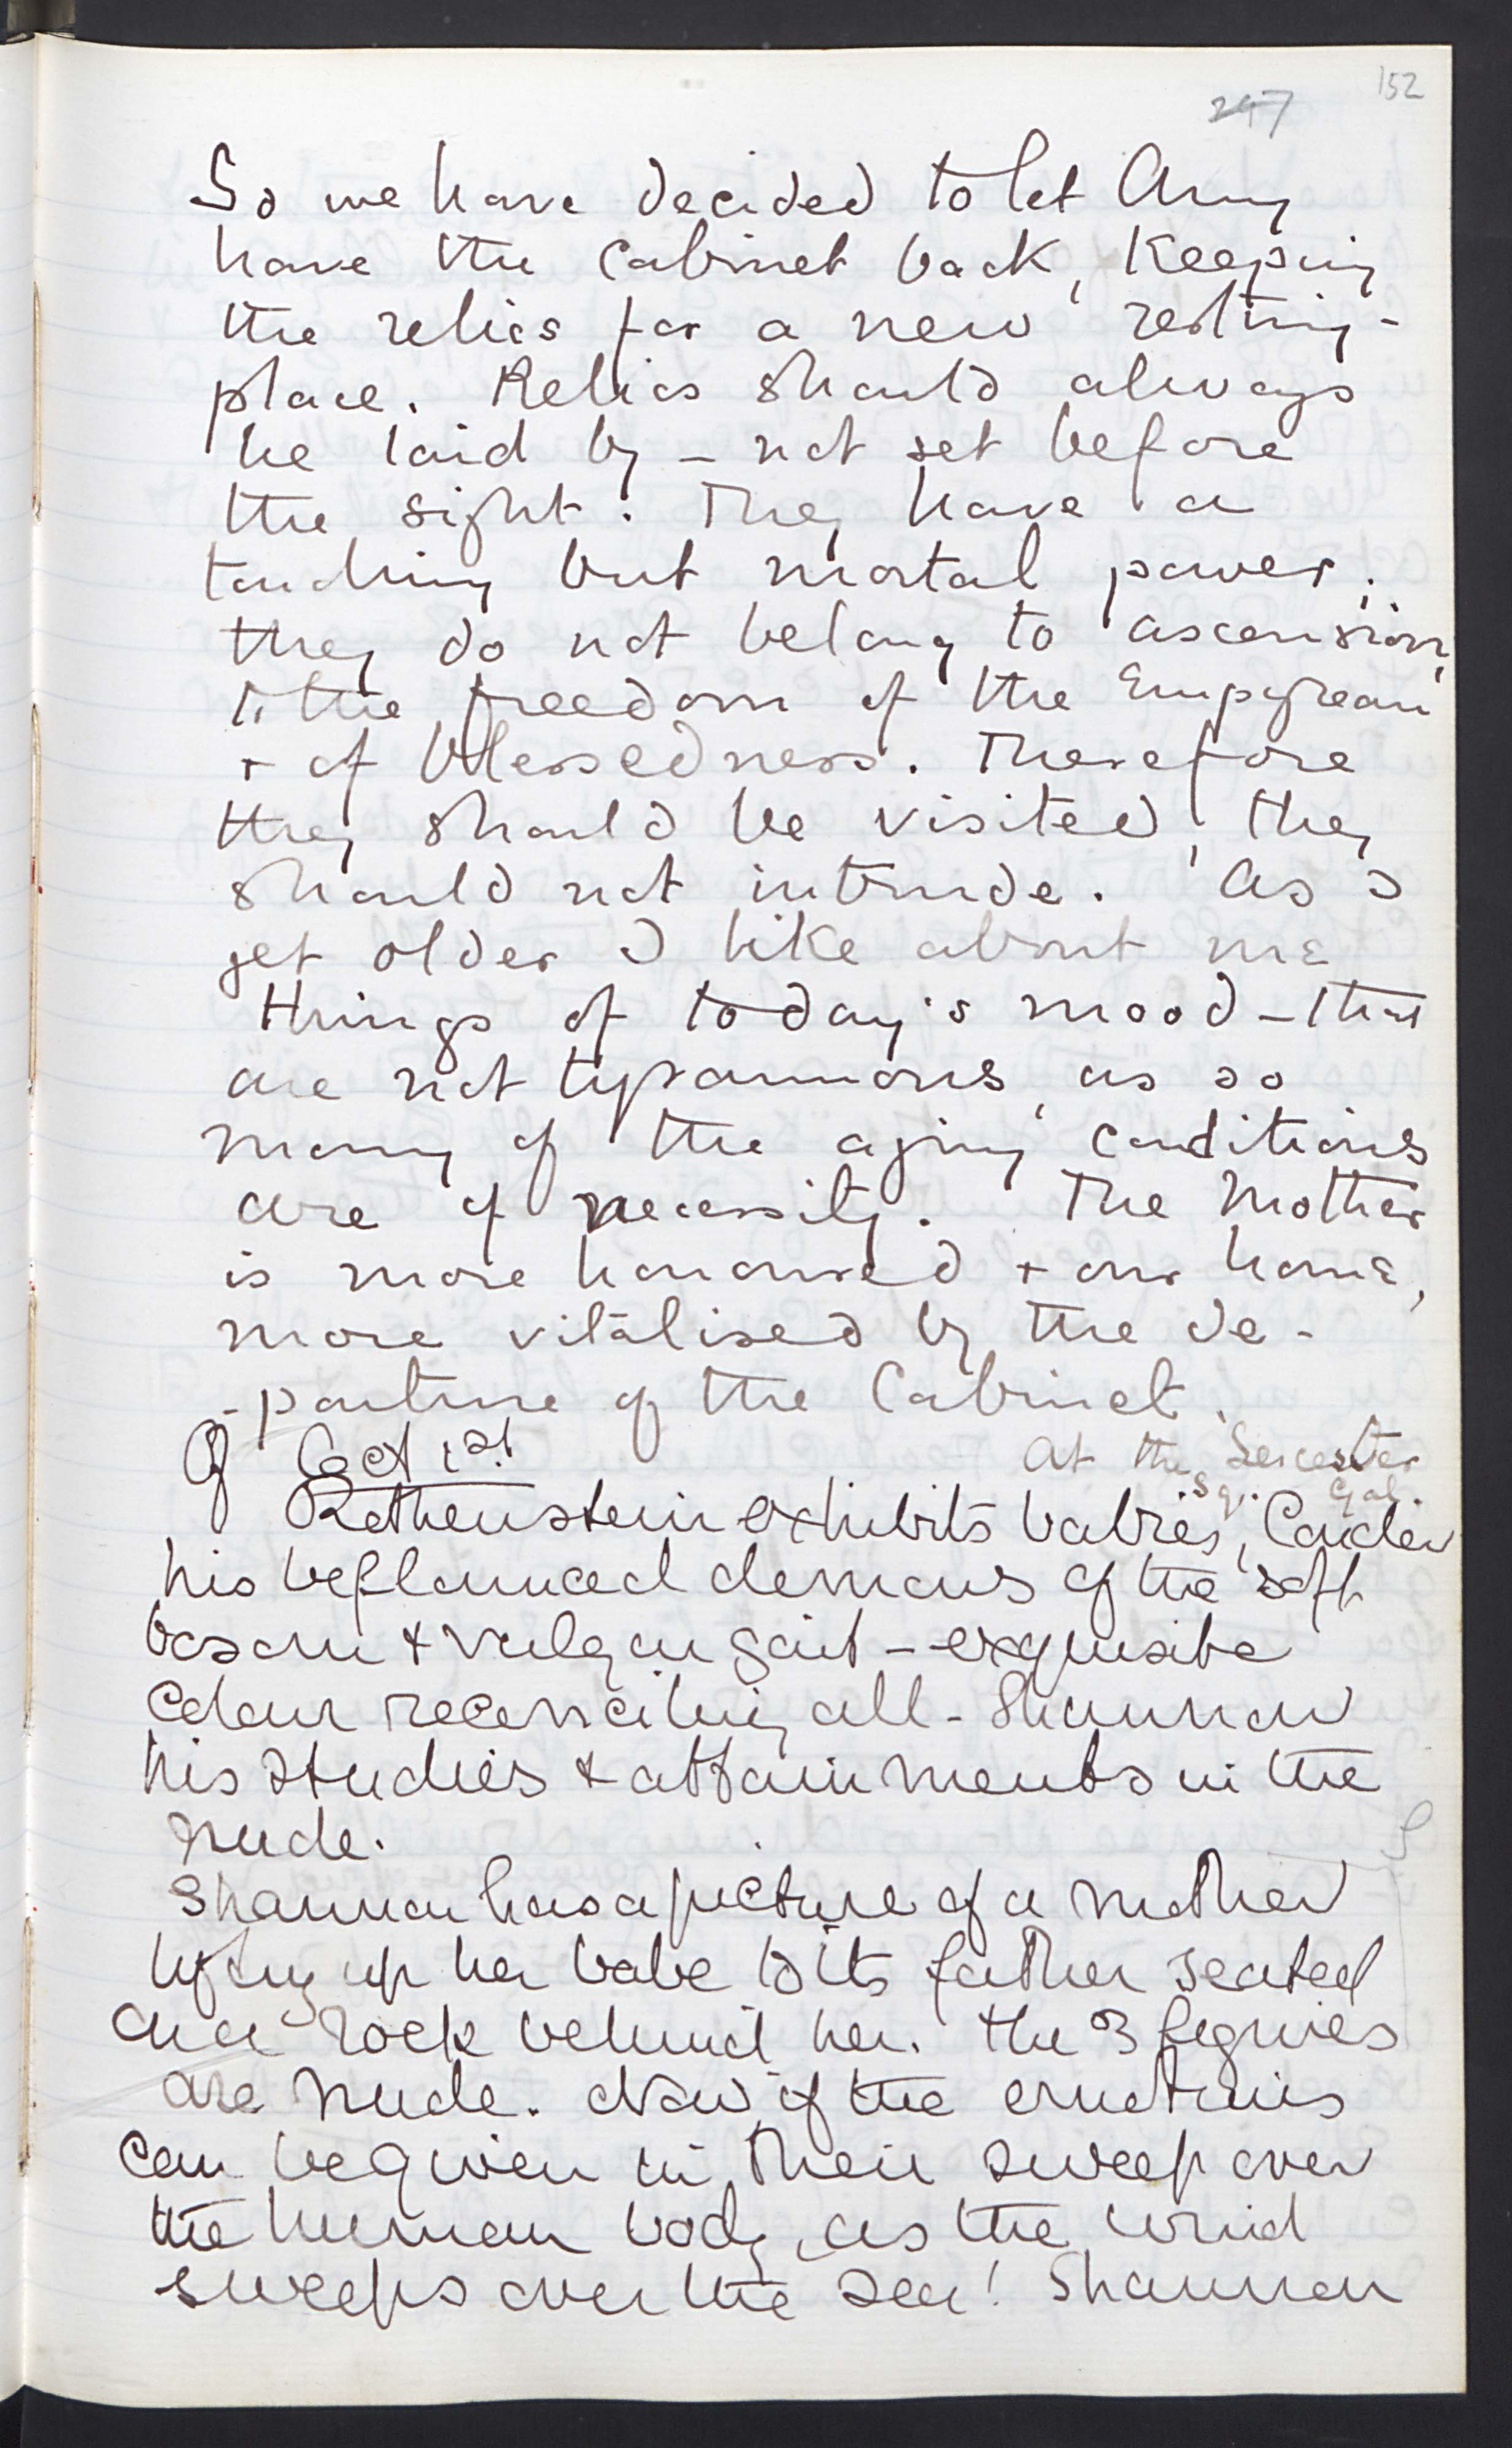 152
247
So we have decided to let Amy
have the Cabinet back, Keeping
the relics for a new resting-
place. Relics should always
be laid by – not set before
the sight. They have a
touching but mortal power;
they do not belong to ascension,
the freedom of the Empyrean
+ of blessedness. Therefore
they should be visited, they
should not intrude. As I
get older I like about me
things of today's mood – that
are not tyrannous, as so
many of the aging conditions
are of necessity. The Mother
is more honoured + our home,
more vitalised by the de-
-parture of the Cabinet.
Oct 1st
At the Leicester
Sq. Gal.
Rothenstein exhibits babies, Conder
his beflounced demons of the soft
bosom & vulgar gait – exquisite
colour reconciling all – Shannon
his studies & attainments in the
nude.
Shannon has a picture of a mother
lifting up her babe to its father seated
on a rock behind her. The 3 figures
are nude. Now if the emotions
can be given in their sweep over
the human body, as the wind
sweeps over the sea! Shannon